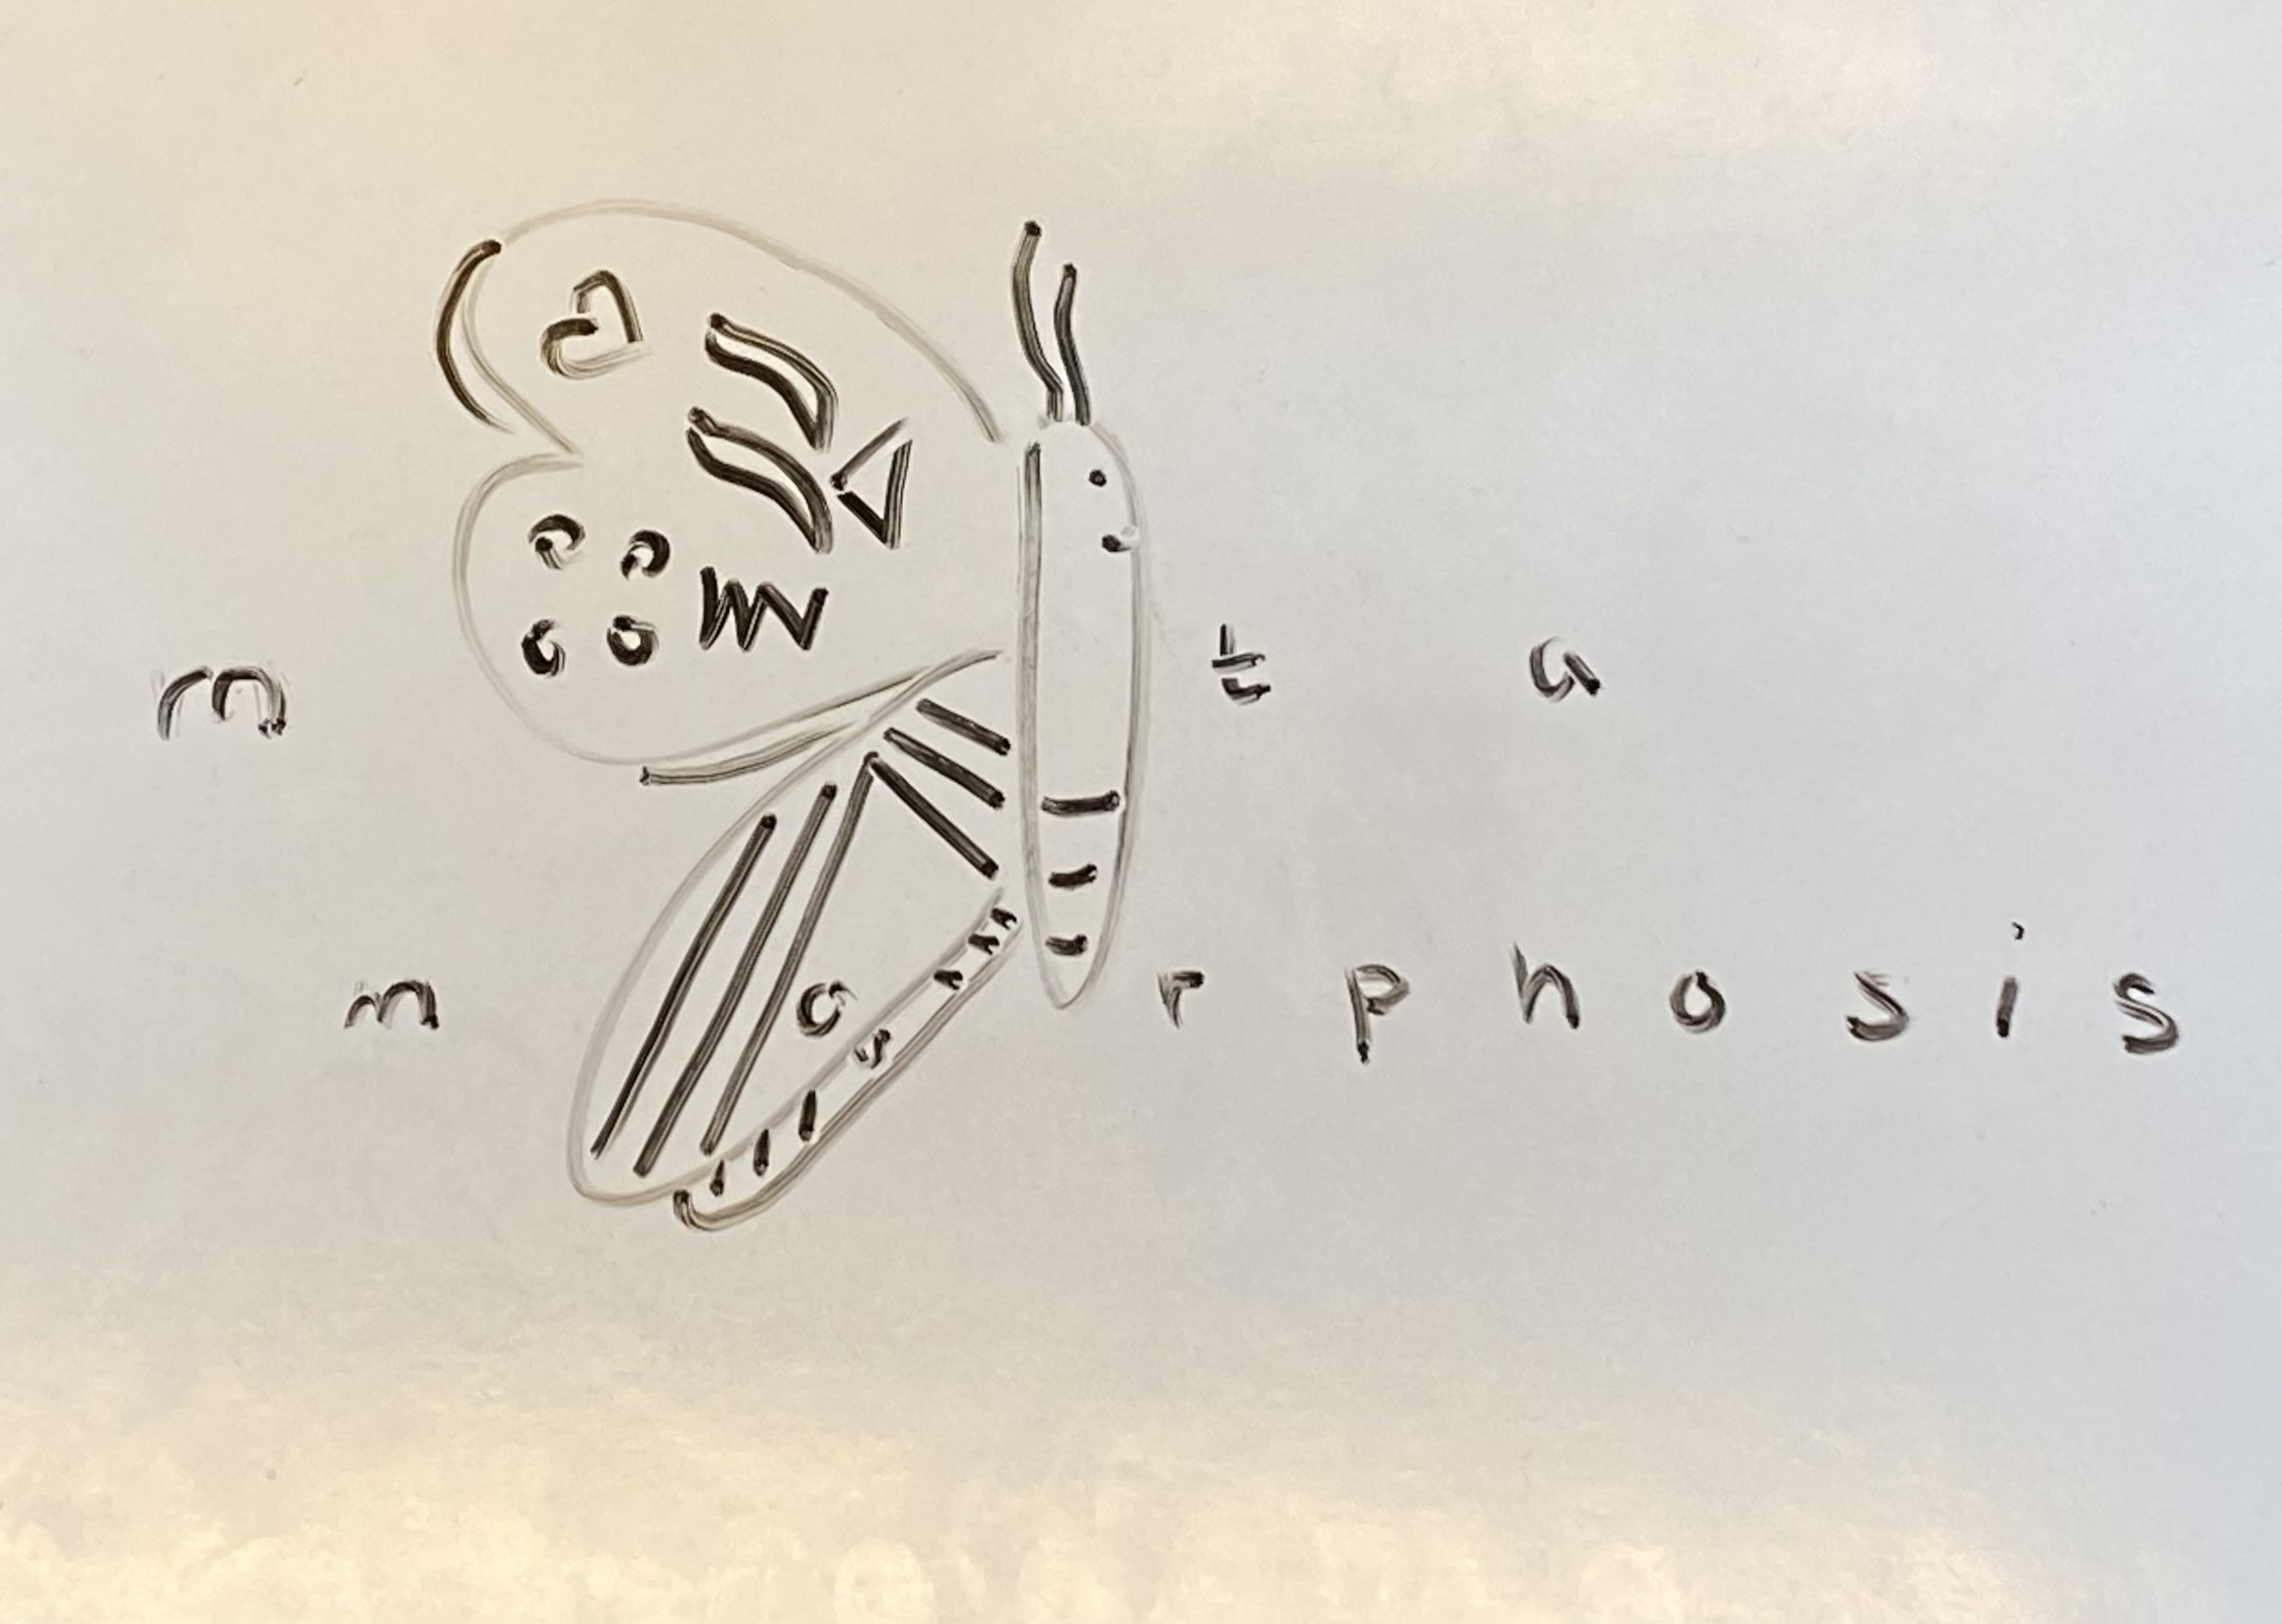 m t a
m o r p h o s i s